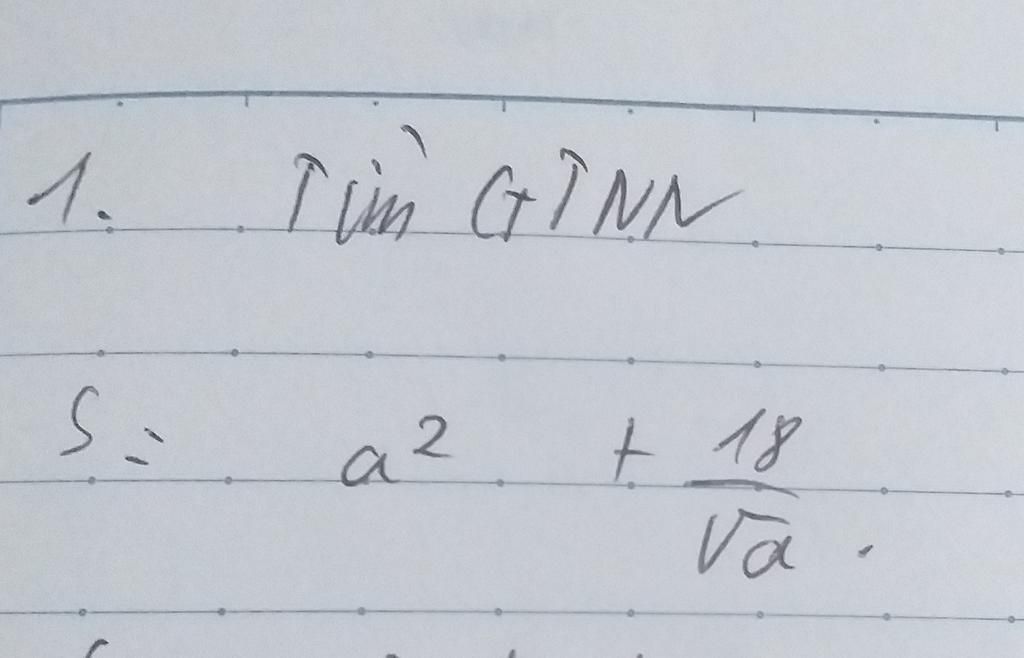 1. Tìm GTNN
S = a² + 18/√a .